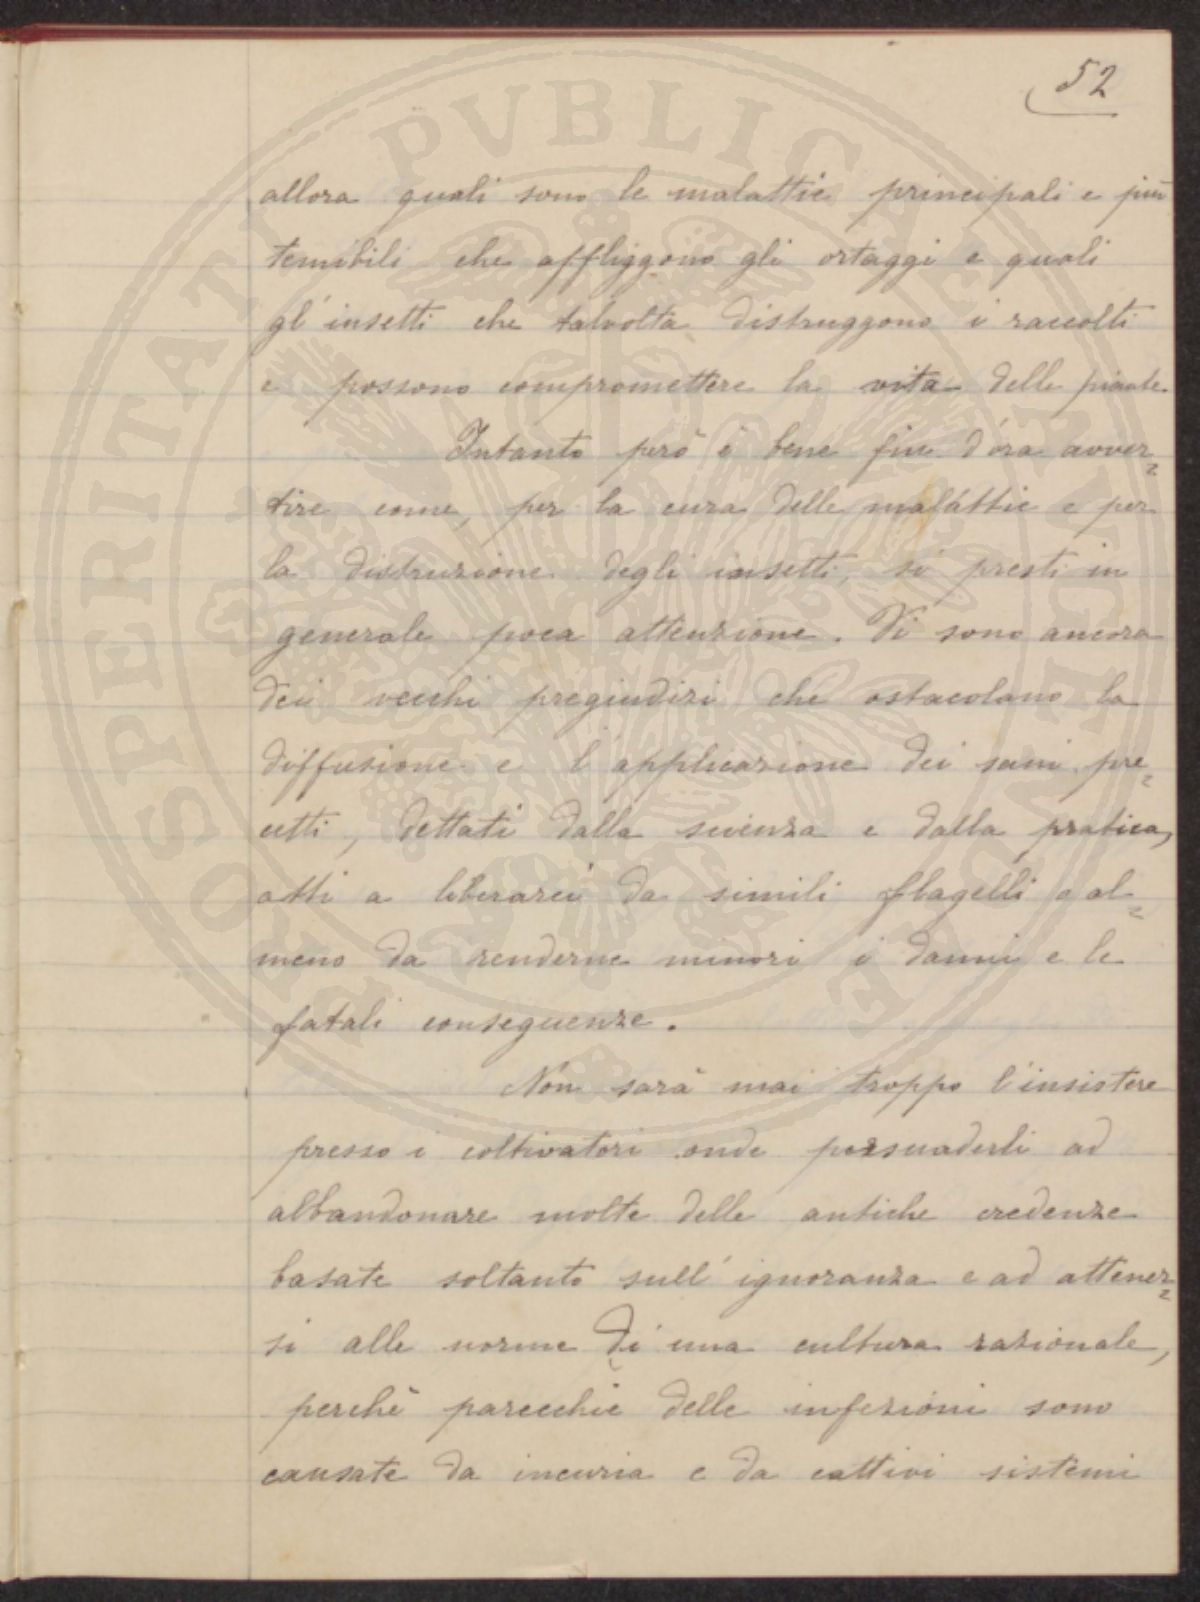 52
allora quali sono le malattie principali e più
temibili che affliggono gli ortaggi e quali
gl'insetti che talvolta distruggono i raccolti
e possono compromettere la vita delle piante.
Intanto però è bene fin d'ora avver=
tire come, per la cura delle malattie e per
la distruzione degli insetti, si presti in
generale poca attenzione. Vi sono ancora
dei vecchi pregiudizi che ostacolano la
diffusione e l'applicazione dei sani pre=
cetti, dettati dalla scienza e dalla pratica,
atti a liberarci da simili flagelli o al=
meno da renderne minori i danni e le
fatali conseguenze.
Non sarà mai troppo l'insistere
presso i coltivatori onde persuaderli ad
abbandonare molte delle antiche credenze
basate soltanto sull'ignoranza e ad attener=
si alle norme di una cultura razionale,
perchè parecchie delle infezioni sono
causate da incuria e da cattivi sistemi
PVBLICAE
PROSPERITATI